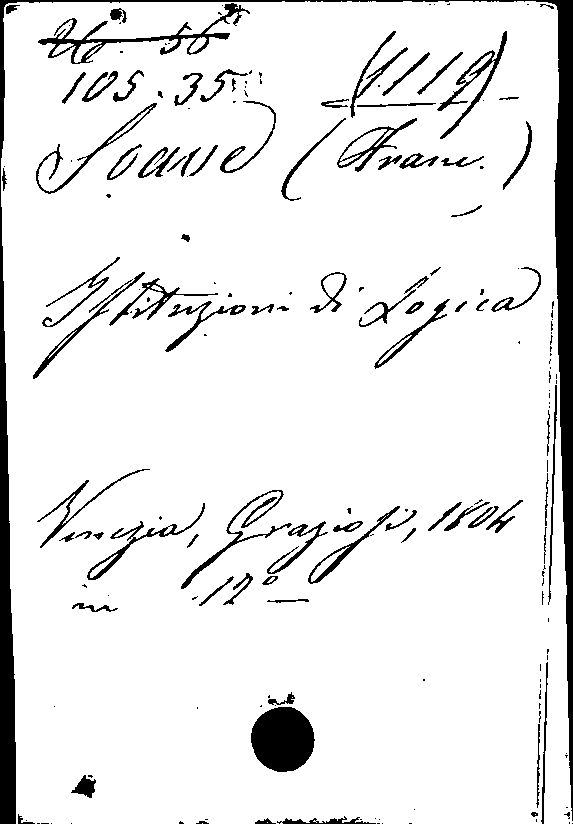 56
105.35 (1119)
Soave (Franc.)
Istituzioni di Logica
Venezia, Graziosi, 1804
in 12º